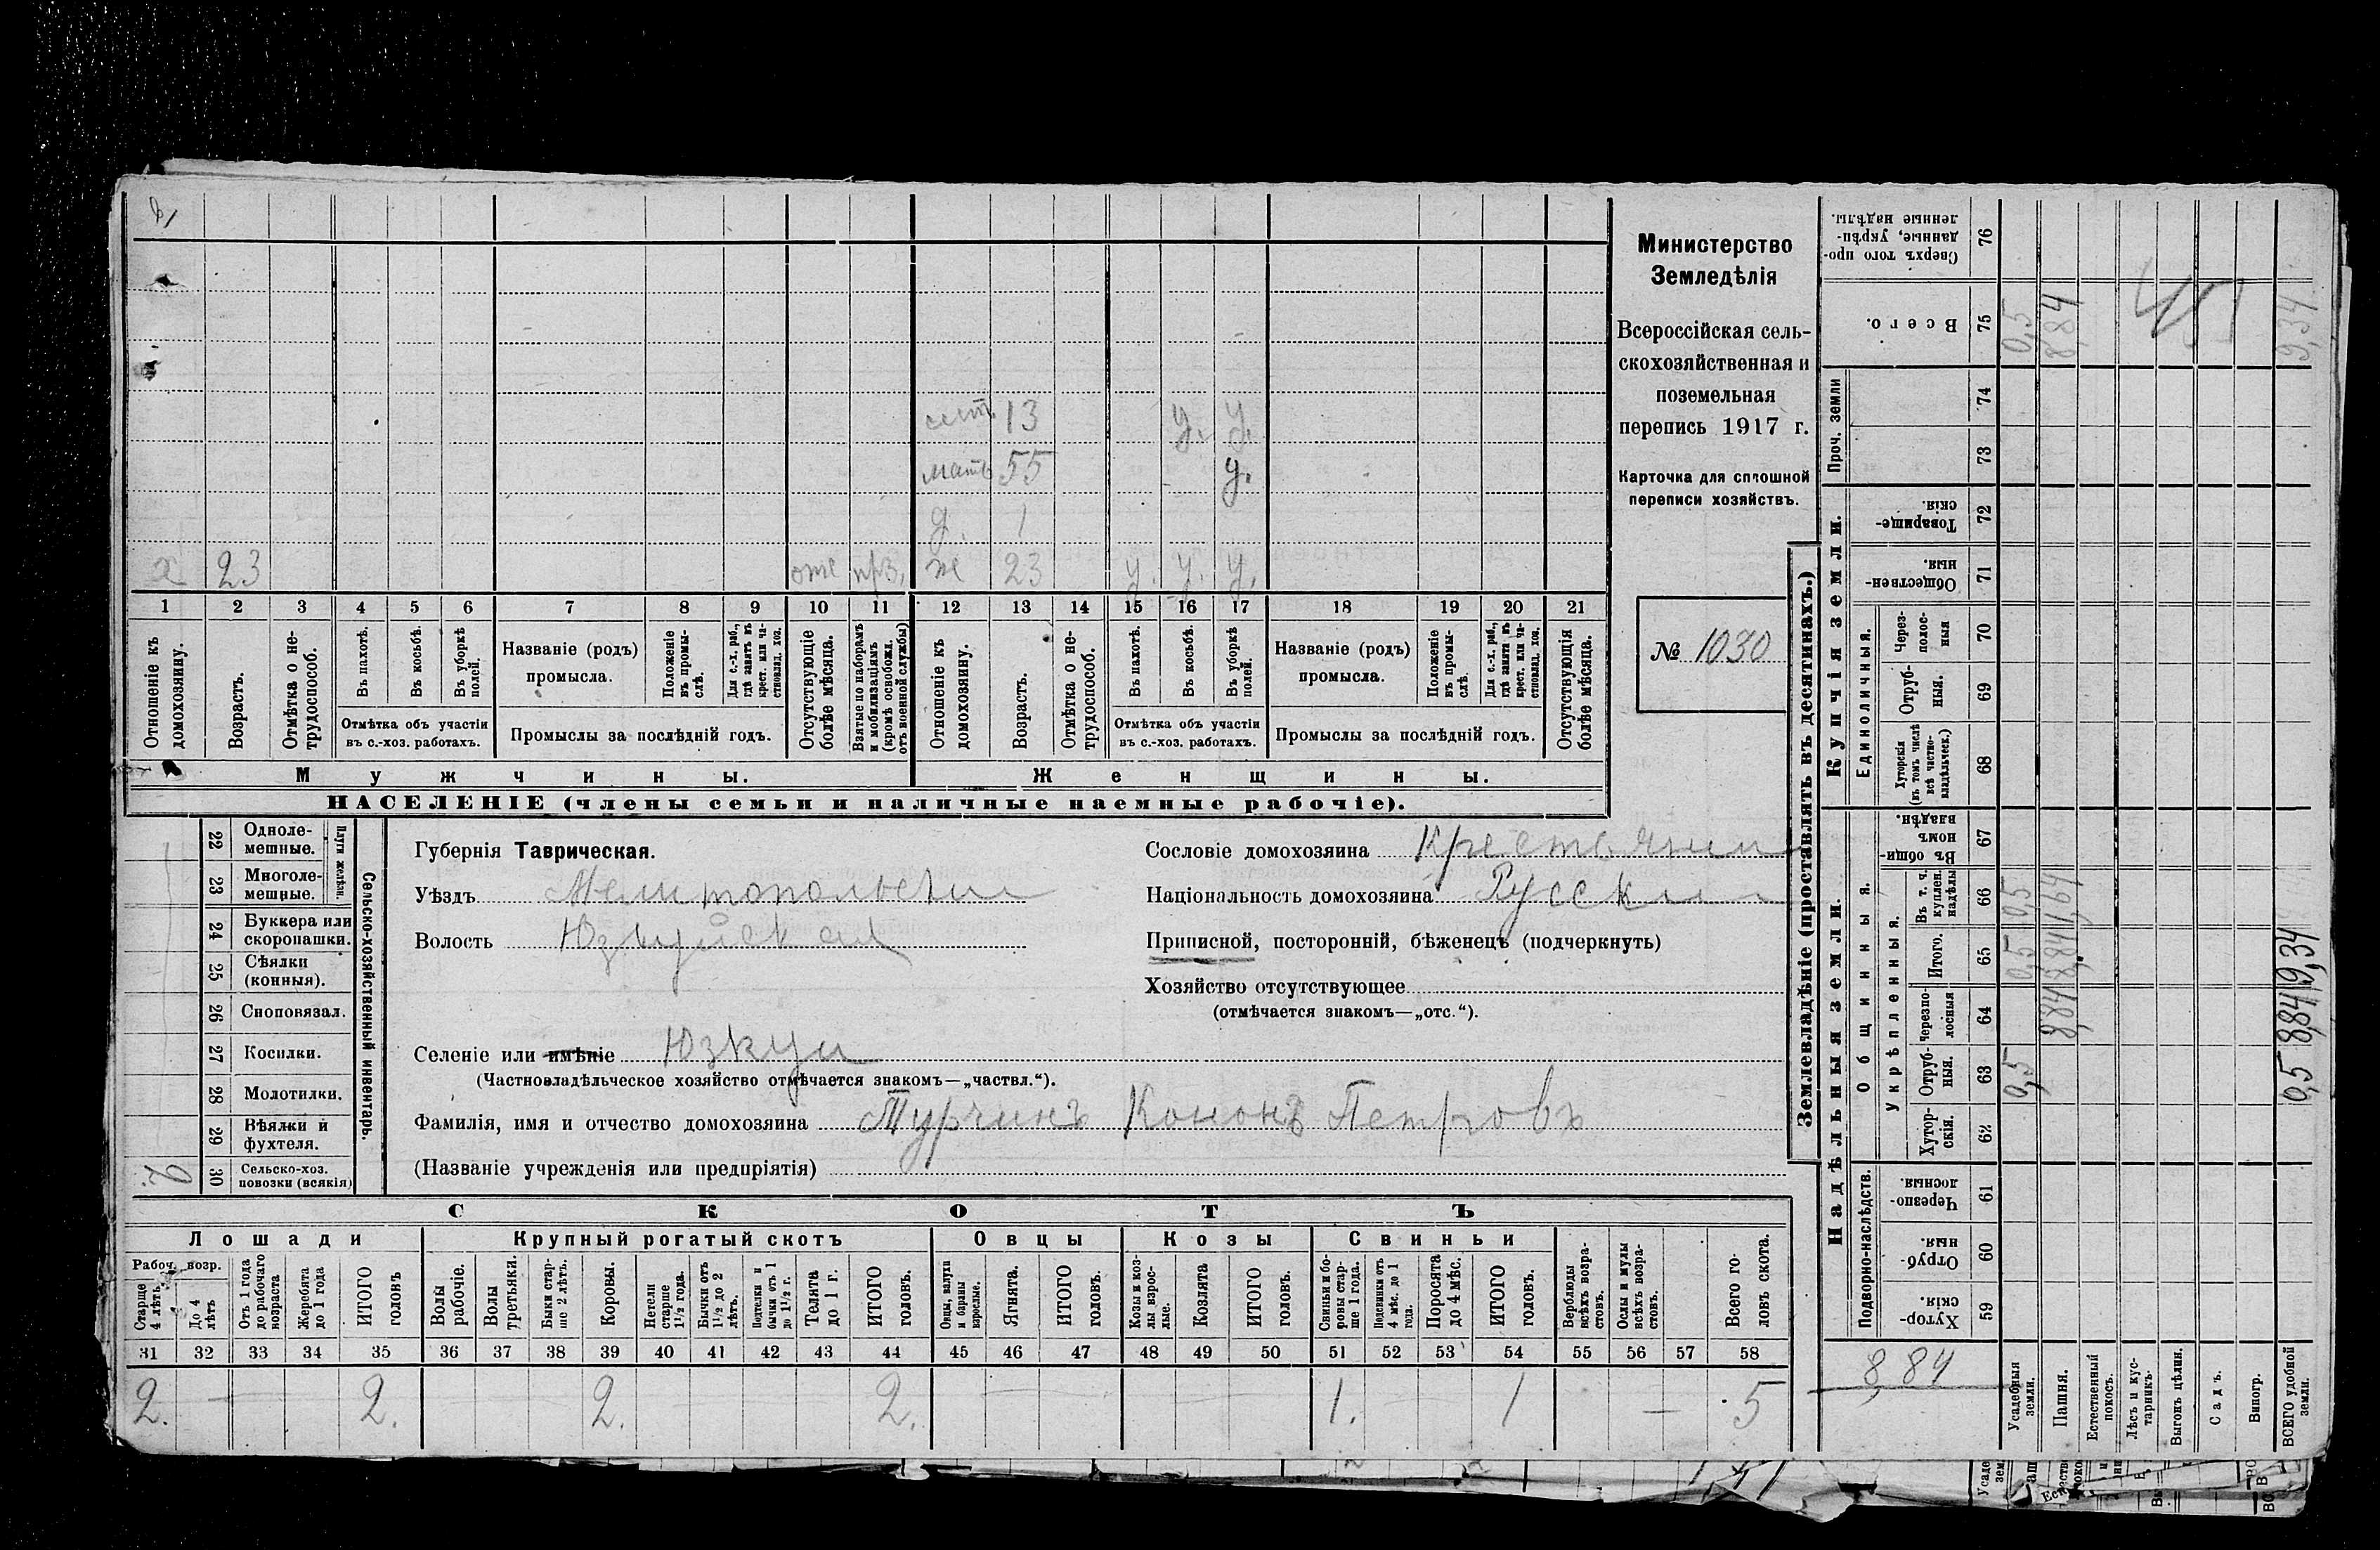 сест. 13 у. у.
мать 55 у.
д. 1
х 23 отс прз. ж 23 у. у. у.
1 2 3 4 5 6 7 8 9 10 11 12 13 14 15 16 17 18 19 20 21
Отношеніе къ домохозяину.
Возрастъ.
Отмѣтка о не-
трудоспособ.
Въ пахотѣ.
Въ косьбѣ.
Въ уборкѣ
полей.
Отмѣтка объ участіи
въ с.-хоз. работахъ.
Названіе (родъ)
промысла.
Положеніе
въ промы-
слѣ.
Для с.-х. раб.,
гдѣ занятъ въ
крест. или ча-
стновлад. хоз.
Промыслы за послѣдній годъ.
Отсутствующіе
болѣе мѣсяца.
Взятые по наборамъ
и мобилизаціямъ
(кромѣ освобожд.
отъ военной службы)
Отношеніе къ
домохозяину.
Возрастъ.
Отмѣтка о не-
трудоспособ.
Въ пахотѣ.
Въ косьбѣ.
Въ уборкѣ
полей.
Отмѣтка объ участіи
въ с.-хоз. работахъ.
Названіе (родъ)
промысла.
Положеніе
въ промы-
слѣ.
Для с.-х. раб.,
гдѣ занята въ
крест. или ча-
стновлад. хоз.
Промыслы за послѣдній годъ.
Отсутствующія
болѣе мѣсяца.
Мужчины.
Женщины.
НАСЕЛЕНІЕ (члены семьи и наличные наемные рабочіе).
Министерство
Земледѣлія
Всероссійская сель-
скохозяйственная и
поземельная
перепись 1917 г.
Карточка для сплошной
переписи хозяйствъ.
№ 1030
22 Одноле-
мешные.
23 Многоле-
мешные.
Плуги желѣзн.
24 Буккера или
скоропашки.
25 Сѣялки
(конныя).
26 Сноповязал.
27 Косилки.
28 Молотилки.
29 Вѣялки и
фухтеля.
30 Сельско-хоз.
повозки (всякія)
2
Сельско-хозяйственный инвентарь.
Губернія Таврическая.
Уѣздъ Мелитопольскій
Волость Юзкуйская
Селеніе или имѣніе Юзкуи
(Частновладѣльческое хозяйство отмѣчается знакомъ—„частвл.“).
Фамилія, имя и отчество домохозяина Турчинъ Кононъ Петровъ
(Названіе учрежденія или предпріятія)
Сословіе домохозяина Крестьянин
Національность домохозяина Русски
Приписной, посторонній, бѣженецъ (подчеркнуть)
Хозяйство отсутствующее
(отмѣчается знакомъ—„отс.“).
СКОТЪ
Лошади
Крупный рогатый скотъ
Овцы
Козы
Свиньи
Рабоч. возр.
Старше
4 лѣтъ.
До 4
лѣтъ
Отъ 1 года
до рабочаго
возраста
Жеребята
до 1 года
ИТОГО
головъ
Волы
рабочіе.
Волы
третьяки.
Быки стар-
ше 2 лѣтъ.
Коровы.
Нетели
старше
1½ года.
Бычки отъ
1½ до 2
лѣтъ.
Подтелки и
бычки отъ 1
до 1½ г.
Телята
до 1 г.
ИТОГО
головъ.
Овцы, валухи
и бараны
взрослые.
Ягнята.
ИТОГО
головъ.
Козы и коз-
лы взрос-
лые.
Козлята
ИТОГО
головъ.
Свиньи и бо-
ровы стар-
ше 1 года.
Подсвинки отъ
4 мѣс. до 1
года.
Поросята
до 4 мѣс.
ИТОГО
головъ.
Верблюды
всѣхъ возра-
стовъ.
Ослы и мулы
всѣхъ возра-
стовъ.
Всего го-
ловъ скота.
31 32 33 34 35 36 37 38 39 40 41 42 43 44 45 46 47 48 49 50 51 52 53 54 55 56 57 58
2. — 2. 2. 2. — — 1. 1 — 5
Землевладѣніе (проставлять въ десятинахъ.)
Надѣльныя земли.
Купчія земли.
Проч. земли
Подворно-наслѣдств.
Общинныя.
Укрѣпленныя.
Единоличныя.
Хутор-
скія. 59
Отруб-
ныя. 60
Черезпо-
лосныя. 61
Хутор-
скія. 62
Отруб-
ныя. 63
Черезпо-
лосныя 64
Итого. 65
Въ т. ч.
куплен.
надѣлы 66
Въ общин-
номъ
владѣн. 67
Хуторскія
(въ томъ числѣ
всѣ частно-
владѣльческ.) 68
Отруб-
ныя. 69
Через-
полос-
ныя 70
Обществен-
ныя. 71
Товарище-
скія. 72
73
74
Всего. 75
Сверхъ того про-
данные, укрѣп-
ленные надѣлы. 76
8,84
Усадебныя
земли. 0,5 0,5 0,5 0,5
Пашня. 8,84 8,84 1,64 8,84
Естественный
покосъ.
Лѣсъ и кус-
тарникъ.
Выгонъ цѣлин.
Садъ.
Виногр.
ВСЕГО удобной
земли. 0,5 8,84 9,34 9,34